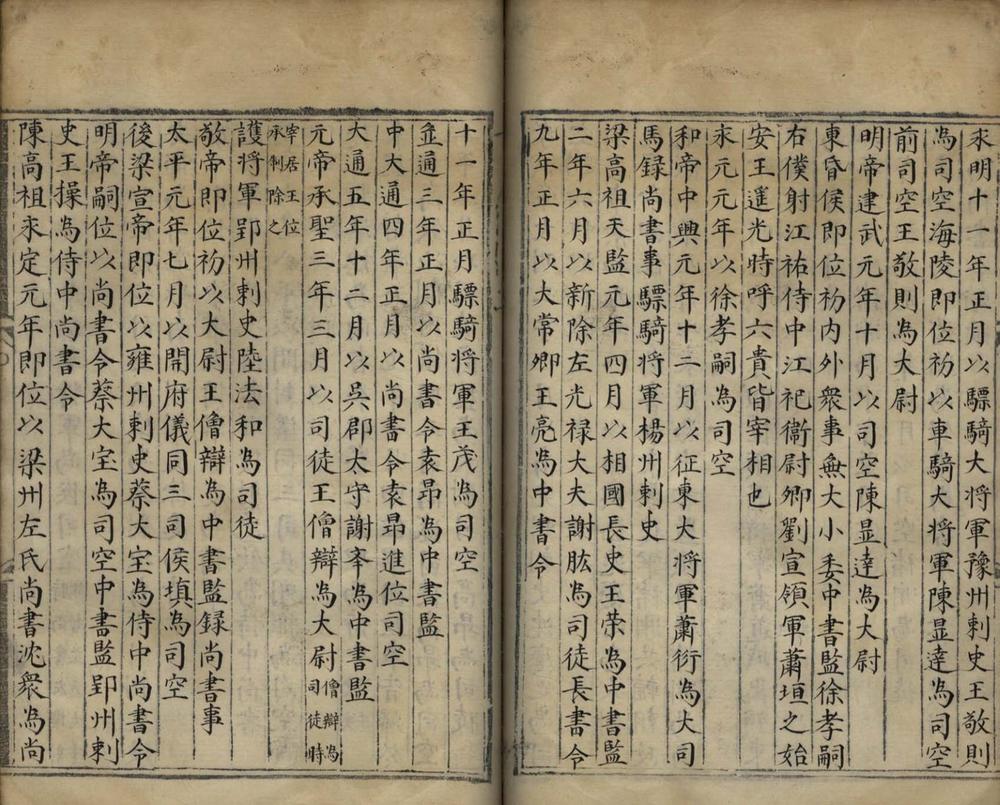 永明十一年正月以驃騎大將軍豫州刺史王敬則
為司空海陵即位初以車騎大将軍陳显達為司空
前司空王敬則為大尉
明帝建武元年十月以司空陳显達為大尉
東昏侯即位初内外衆事無大小委中書監徐孝嗣
右僕射江祐侍中江祀衛尉卿劉宣領軍蕭垣之始
安王遙光時呼六貴皆宰相也
永元元年以徐孝嗣為司空
和帝中興元年十二月以征東大将軍蕭衍為大司
馬録尚書事驃騎将軍楊州刺史
梁高祖天監元年四月以相國長史王荣為中書監
二年六月以新除左光禄大夫謝朏為司徒長書令
九年正月以大常卿王亮為中書令
十一年正月驃騎将軍王茂為司空
並通三年正月以尚書令袁昂為中書監
中大通四年正月以尚書令袁昂進位司空
大通五年十二月以吳郡太守謝峯為中書監
元帝承聖三年三月以司徒王僧辯為大尉僧辯為司徒時
宰居王位承制除之
護将軍郢州刺史陸法和為司徒
敬帝即位初以大尉王僧辯為中書監録尚書事
太平元年七月以開府儀同三司侯填為司空
後梁宣帝即位以雍州刺史蔡大宝為侍中尚書令
明帝嗣位以尚書令蔡大宝為司空中書監郢州刺
史王操為侍中尚書令
陳高祖永定元年即位以梁州左氏尚書沈衆為尚